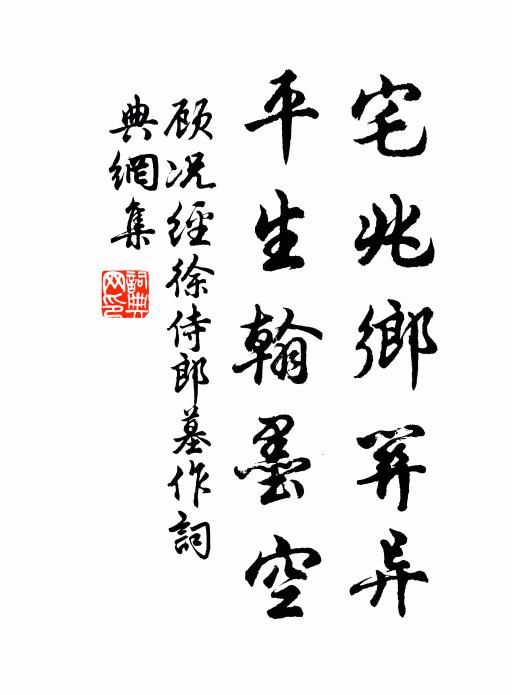 宅兆鄉關异
平生翰墨空
顾况經徐侍郎墓作詞
典網集
詞典网印